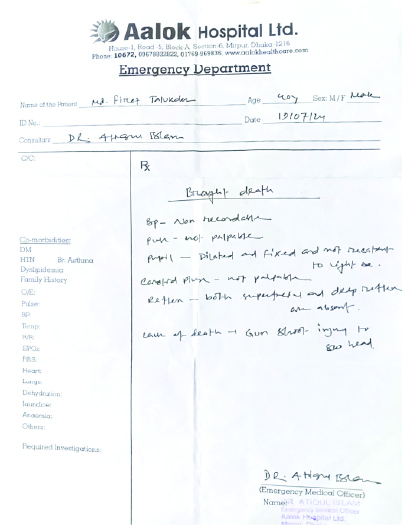 Aalok Hospital Ltd.
House-1, Road-5, Block A, Section-6, Mirpur, Dhaka-1216
Phone: 10672, 09678822822, 01769 969836, www.aalokhealthcare.com
Emergency Department
Name of the Patient Md. Firoz Talukder Age 40y Sex: M/F Male
ID No. Date 19/07/24
Consultant DR. Islam
C/C:
Rx
Brought death
BP- Non recordable
pulse - not palpable
Pupil - Dilated and fixed and not reactant
to light
Carotid pulse - not palpable
Reflex - both superficial and deep reflex
are absent.
cause of death → Gun Shoot injury to
head
Co-morbidities:
DM
HTN Br. Asthma
Dyslipidemia
Family History
O/E:
Pulse:
BP:
Temp:
R/R:
SPO2:
RBS:
Heart:
Lungs:
Dehydration:
Jaundice:
Anaemia:
Others:
Required Investigations:
DR. Islam
(Emergency Medical Officer)
Name: DR. ATIQUL ISLAM
Emergency Medical Officer
Aalok Hospital Ltd.